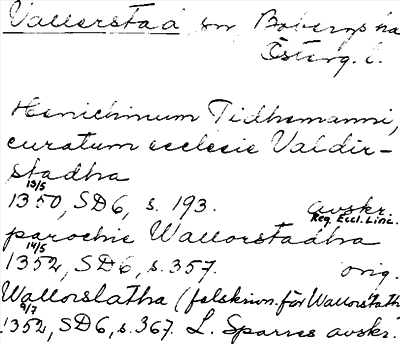 Vallerstad sn Bobergs ha
Österg. l.
Henichinum Tidhemanni,
curatum ecclesie Valdir-
stadha
13/5
1350, SD6, s. 193. avskr.
Reg. Eccl. Linc.
parochie Wallorstadha
14/5
1352, SD6, s. 357. orig.
Wallorslatha (felskrivn. för Wallorstath
9/7
1352, SD6, s. 367. L. Sparres avskr.